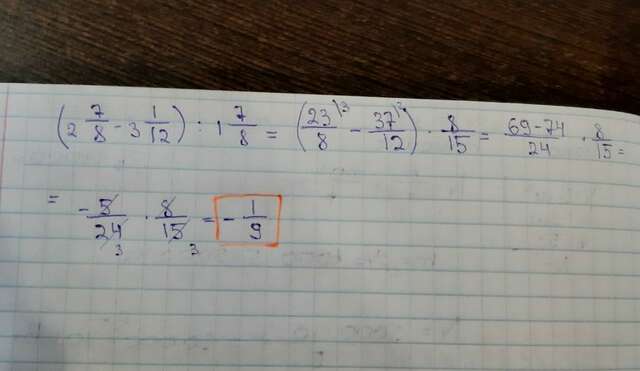 (2 7/8 - 3 1/12) : 1 7/8 = (23/8 ⁾³ - 37/12 ⁾²) · 8/15 = 69-74/24 · 8/15 =
= -5/24 3 · 8/15 3 = - 1/9